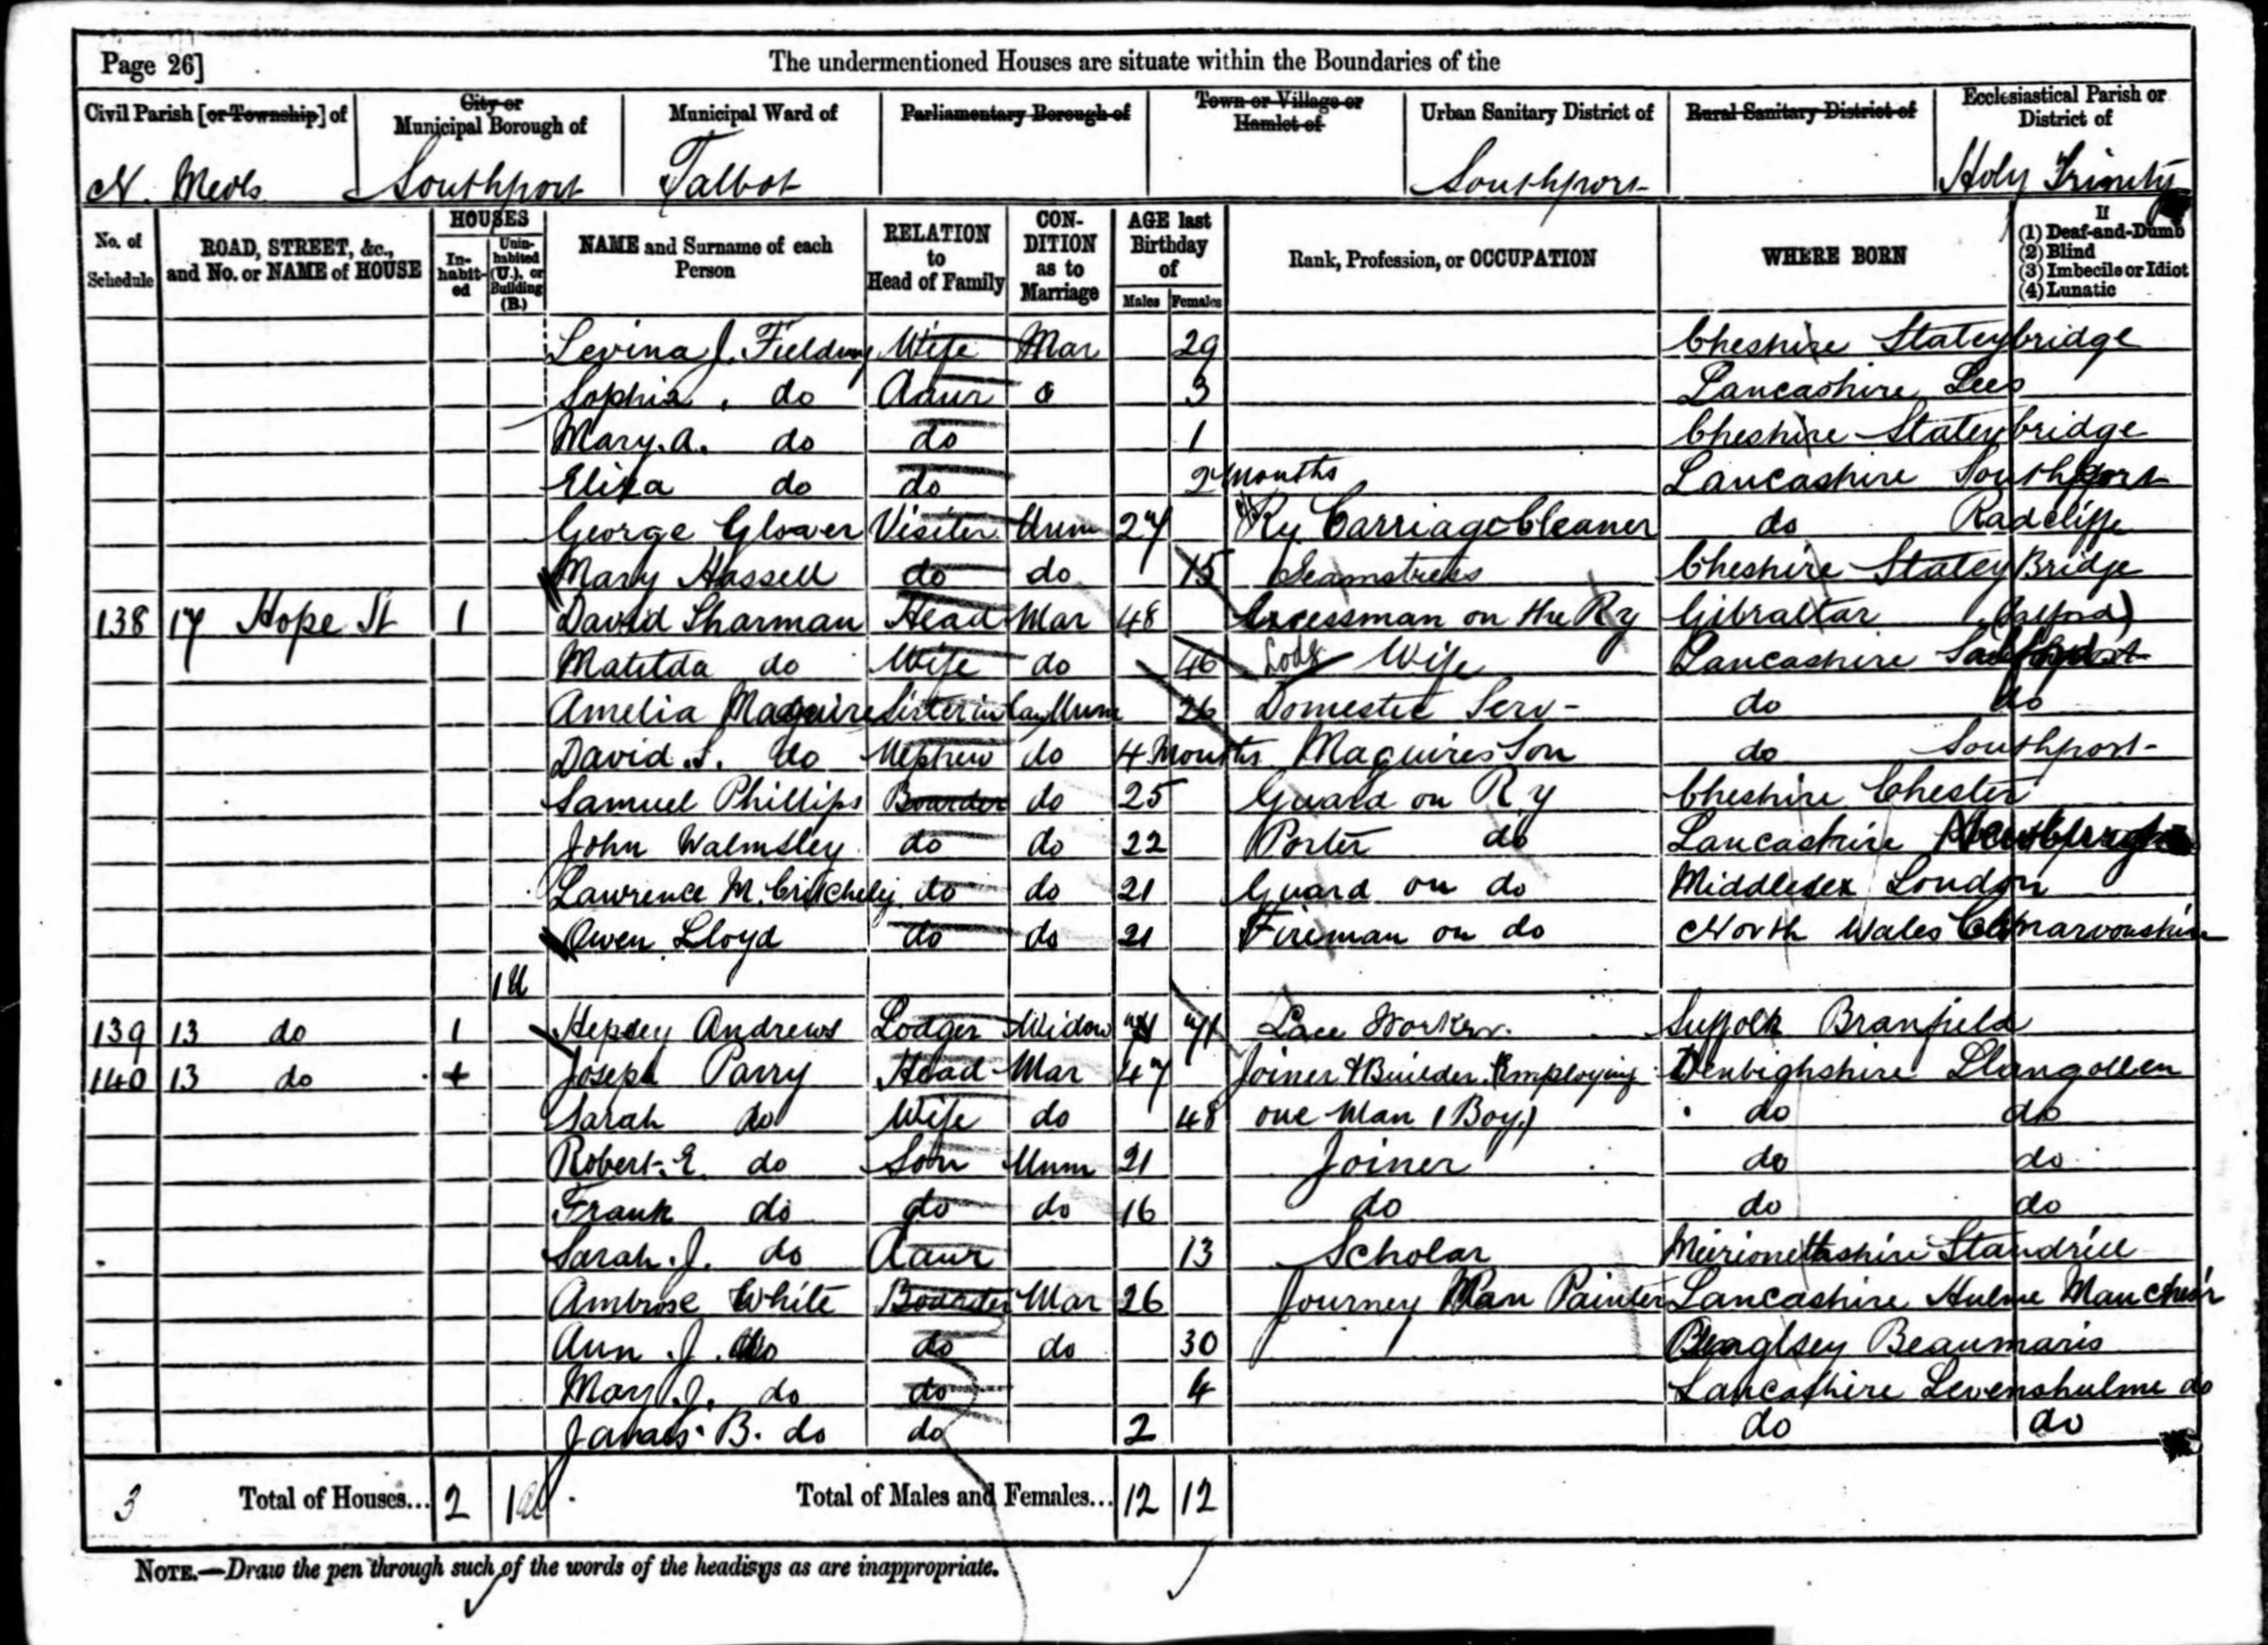 Page 26]
The undermentioned Houses are situate within the Boundaries of the
Civil Parish [or Township] of
City or Municipal Borough of
Municipal Ward of
Parliamentary Borough of
Town or Village or Hamlet of
Urban Sanitary District of
Rural Sanitary District of
Ecclesiastical Parish or District of
N. Meols Southport Talbot Southport Holy Trinity
No. of Schedule
ROAD, STREET, &c., and No. or NAME of HOUSE
HOUSES
In-habit-ed
Unin-habited (U.), or Building (B.)
NAME and Surname of each Person
RELATION to Head of Family
CON-DITION as to Marriage
AGE last Birthday of
Males Females
Rank, Profession, or OCCUPATION
WHERE BORN
If
(1) Deaf-and-Dumb
(2) Blind
(3) Imbecile or Idiot
(4) Lunatic
Levina J. Fielding Wife Mar 29 Cheshire Stateybridge
Sophia do Daur 3 Lancashire Lees
Mary. A. do do 1 Cheshire Stateybridge
Eliza do do 2 Months Lancashire Southport
George Glover Visiter Unm 27 Ry Carriage Cleaner do Radcliffe
Mary Hassell do do 15 Seamstress Cheshire Statey Bridge
138 17 Hope St 1 David Sharman Head Mar 48 Excessman on the Ry Gibraltar (Salford)
Matilda do Wife do 46 Wife Lancashire
Amelia Maguire Sister in law Unm 26 Domestic Serv- do do
David. S. do Nephew do 4 Months Maguires Son do Southport
Samuel Phillips Boarder do 25 Guard on Ry Cheshire Chester
John Walmsley do do 22 Porter do Lancashire
Lawrence M. Critchely do do 21 Guard on do Middlesex London
Owen Lloyd do do 21 Fireman on do North Wales Carnarvonshire
1 U
139 13 do 1 Hepsey Andrews Lodger Widow 71 Lace Worker. Suffolk Branfield
140 13 do Joseph Parry Head Mar 47 Joiner & Builder Employing Denbighshire Llangollen
Sarah do Wife do 48 one Man 1 Boy) do do
Robert. E. do Son Unm 21 Joiner do do
Frank do do do 16 do do do
Sarah. J. do Daur 13 Scholar Meirionethshire Llandrill
Ambrose White Boarder Mar 26 Journey Man Painter Lancashire Hulme Manchest'r
Ann. J. do do do 30 Beaumaris
Mary J. do do 4 Lancashire Levenshulme do
B. do do 2 do do
3 Total of Houses... 2 1 U Total of Males and Females... 12 12
NOTE.—Draw the pen through such of the words of the headings as are inappropriate.